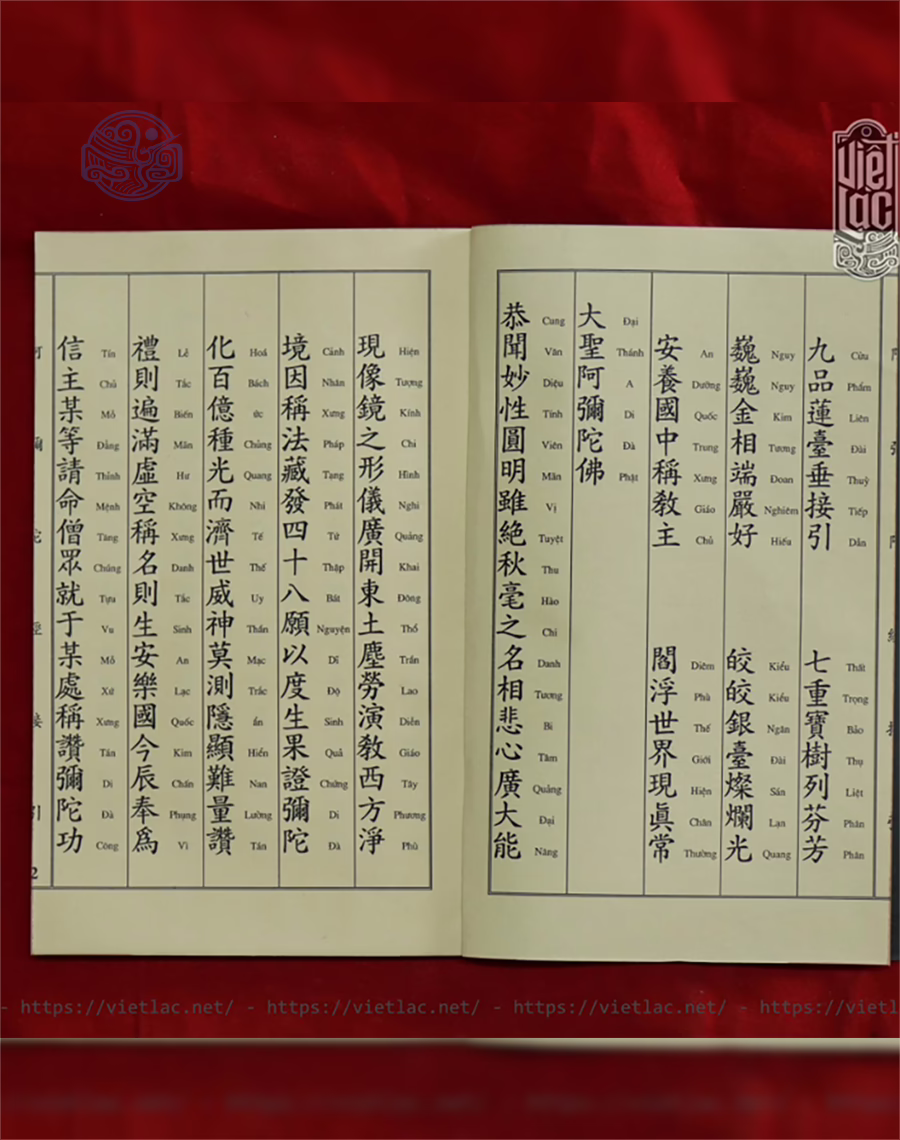 九品蓮臺垂接引 七重寶樹列芬芳
Cửu Phẩm Liên Đài Thuỳ Tiếp Dẫn Thất Trọng Bảo Thụ Liệt Phân Phân
巍巍金相端嚴好 皎皎銀臺燦爛光
Nguy Nguy Kim Tương Đoan Nghiêm Hiếu Kiểu Kiểu Ngân Đài Sán Lạn Quang
安養國中稱教主 閻浮世界現眞常
An Dưỡng Quốc Trung Xưng Giáo Chủ Diêm Phù Thế Giới Hiện Chân Thường
大聖阿彌陀佛
Đại Thánh A Di Đà Phật
恭聞妙性圓明雖絶秋毫之名相悲心廣大能
Cung Văn Diệu Tính Viên Mãn Vị Tuyệt Thu Hào Chi Danh Tương Bi Tâm Quảng Đại Năng
現像鏡之形儀廣開東土塵勞演教西方淨
Hiện Tượng Kính Chi Hình Nghi Quảng Khai Đông Thổ Trần Lao Diễn Giáo Tây Phương Phù
境因稱法藏發四十八願以度生果證彌陀
Cảnh Nhân Xưng Pháp Tạng Phát Tứ Thập Bát Nguyện Dĩ Độ Sinh Quả Chứng Di Đà
化百億種光而濟世威神莫測隱顯難量讚
Hoá Bách ức Chủng Quang Nhi Tế Thế Uy Thần Mạc Trắc ẩn Hiển Nan Lường Tán
禮則遍滿虛空稱名則生安樂國今辰奉爲
Lễ Tắc Biến Mãn Hư Không Xưng Danh Tắc Sinh An Lạc Quốc Kim Chấn Phụng Vì
信主某等請命僧眾就于某處稱讚彌陀功
Tín Chủ Mỗ Đẳng Thỉnh Mệnh Tăng Chúng Tựu Vu Mỗ Xứ Xưng Tán Di Đà Công
2
việt lạc
- https://vietlac.net/ - https://vietlac.net/ - https://vietlac.net/ - https://vietl